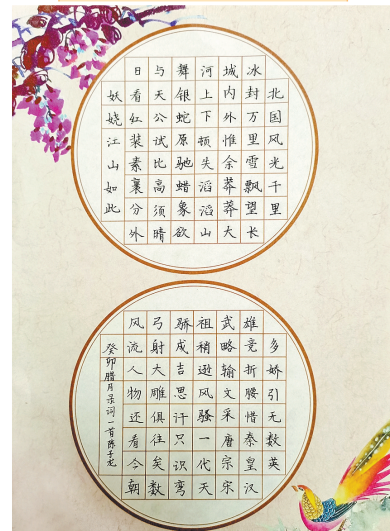 北国风光千里
冰封万里雪飘望长
城内外惟余莽莽大
河上下顿失滔滔山
舞银蛇原驰蜡象欲
与天公试比高须晴
日看红装素裹分外
妖娆江山如此
多娇引无数英
雄竞折腰惜秦皇汉
武略输文采唐宗宋
祖稍逊风骚一代天
骄成吉思汗只识弯
弓射大雕俱往矣数
风流人物还看今朝
癸卯腊月录词一首陈子龙